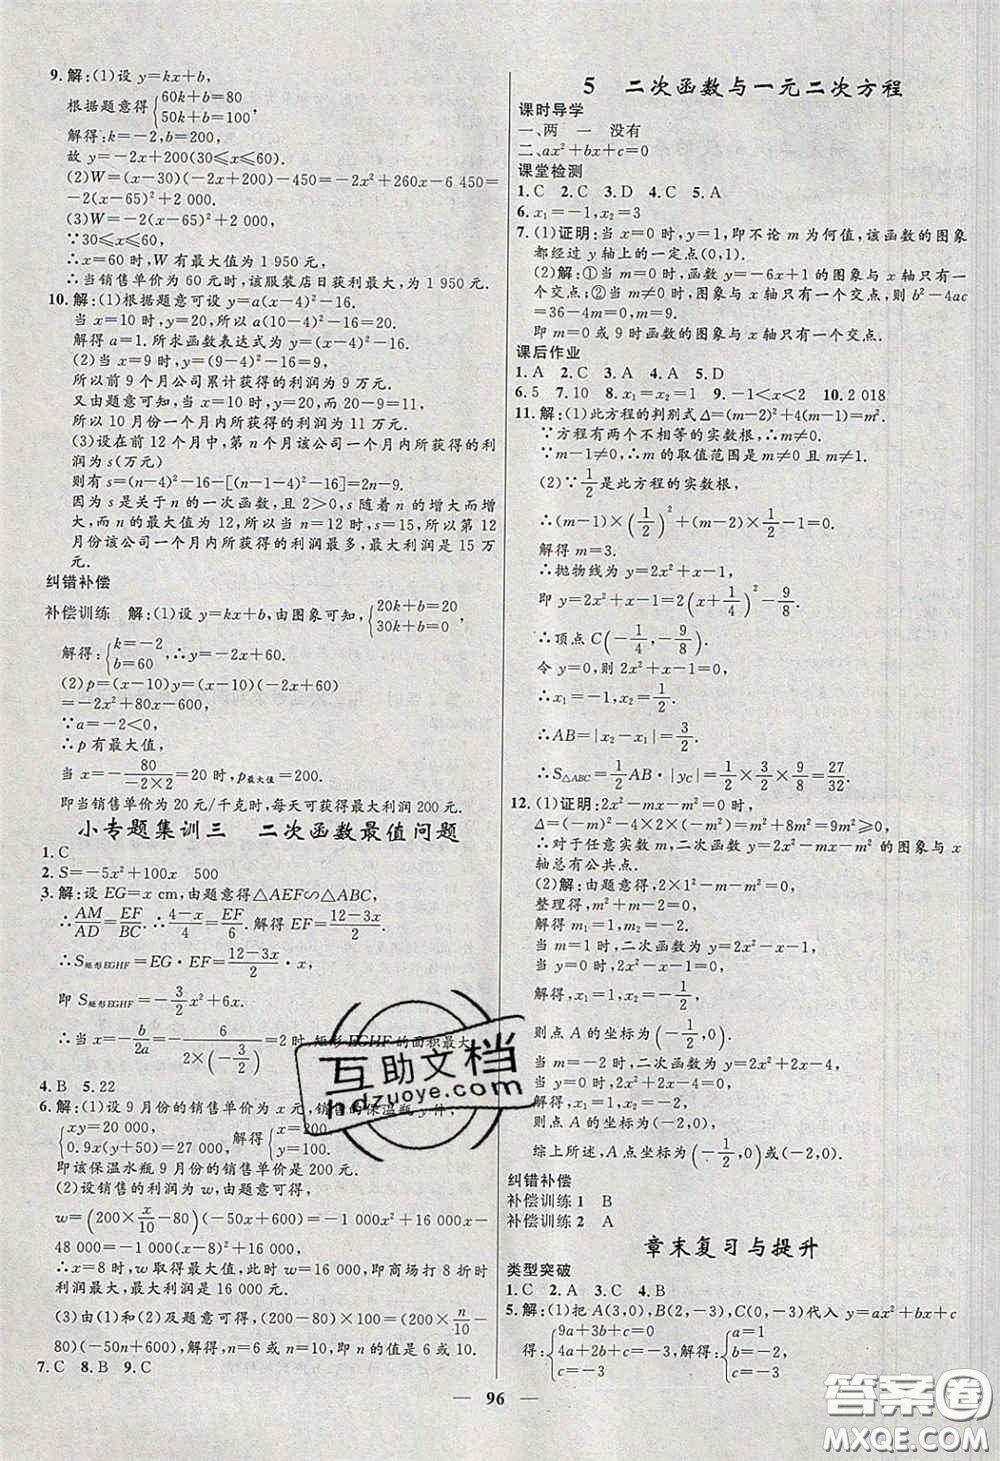 9. 解:(1)设 y=kx+b,
根据题意得{60k+b=80
50k+b=100
解得:k=-2,b=200.
故 y=-2x+200(30≤x≤60).
(2)W=(x-30)(-2x+200)-450=-2x²+260x-6 450=
-2(x-65)²+2 000.
(3)W=-2(x-65)²+2 000.
∵30≤x≤60,
∴x=60时,W有最大值为 1 950元,
∴当销售单价为 60 元时,该服装店日获利最大,为 1 950元.
10. 解:(1)根据题意可设 y=a(x-4)²-16.
当 x=10 时,y=20,所以 a(10-4)²-16=20.
解得 a=1. 所求函数表达式为 y=(x-4)²-16.
(2)当 x=9 时,y=(9-4)²-16=9,
所以前 9 个月公司累计获得的利润为 9 万元.
又由题意可知,当 x=10 时,y=20,而 20-9=11,
所以 10 月份一个月内所获得的利润为 11 万元.
(3)设在前 12 个月中,第 n 个月该公司一个月内所获得的利
润为 s(万元)
则有 s=(n-4)²-16-[(n-1-4)²-16]=2n-9.
因为 s 是关于 n 的一次函数,且 2>0,s 随着 n 的增大而增
大,而 n 的最大值为 12,所以当 n=12 时,s=15,所以第 12
月份该公司一个月内所获得的利润最多,最大利润是 15 万
元.
纠错补偿
补偿训练 解:(1)设 y=kx+b,由图象可知,{20k+b=20
30k+b=0
解得:{k=-2
b=60,∴y=-2x+60.
(2)p=(x-10)y=(x-10)(-2x+60)
=-2x²+80x-600,
∵a=-2<0,
∴p 有最大值,
当 x=-80/(-2×2)=20 时,p最大值=200.
即当销售单价为 20 元/千克时,每天可获得最大利润 200 元.
小专题集训三 二次函数最值问题
1. C
2. S=-5x²+100x 500
3. 解:设 EG=x cm,由题意得△AEF∽△ABC,
∴AM/AD=EF/BC. ∴(4-x)/4=EF/6. 解得 EF=(12-3x)/2.
∴S矩形EGHF=EG·EF=(12-3x)/2·x,
即 S矩形EGHF=-3/2x²+6x.
∴当 x=-b/2a=-6/(2×(-3/2))=2时,矩形EGHF的面积最大.
4. B 5. 22
6. 解:(1)设 9 月份的销售单价为 x 元,销售的保温瓶 y 件,
{xy=20 000,
0.9x(y+50)=27 000, 解得{x=200
即该保温水瓶 9 月份的销售单价为
(2)设销售的利润为 w,由题意可得,
w=(200×x/10-80)(-50x+600)=-1 000x²+16 000x-
48 000=-1 000(x-8)²+16 000,
∴x=8 时,w 取得最大值,即即商场打 8 折时利润
最大,最大利润是 16 000 元.
(3)由(1)和(2)及题意可得,(200×n/10-
80)(-50n+600),解得,n=6,即 n 的值是 6 元.
7. C 8. B 9. C
5 二次函数与一元二次方程
课时导学
一、两 一 没有
二、ax²+bx+c=0
课堂检测
1. C 2. C 3. D 4. C 5. A
6. x₁=-1,x₂=3
7. (1)证明:当 x=0 时,y=1,即不论 m 为何值,该函数的图象
都经过 y 轴上的一定点(0,1).
(2)解:①当 m=0 时,函数 y=-6x+1 的图象与 x 轴只有一
个交点;②当 m≠0 时,图象与 x 轴只有一个交点,则 b²-4ac
=36-4m=0,m=9.
即 m=0 或 9 时函数的图象与 x 轴只有一个交点.
课后作业
1. A 2. C 3. A 4. A 5. D
6. 5 7. 10 8. x₁=-1,x₂=5 9. -1<x<2 10. 2 018
11. 解:(1)此方程的判别式 Δ=(m-2)²+4(m-1)=m².
∵方程有两个不相等的实数根,∴m≠0.
∵m-1≠0,∴m 的取值范围是 m≠0 且 m≠1.
(2)∵1/2是此方程的实数根,
∴(m-1)×(1/2)²+(m-2)×1/2-1=0.
解得 m=3.
∴抛物线为 y=2x²+x-1,
即 y=2(x+1/4)²-9/8.
∴顶点 C(-1/4,-9/8).
令 y=0,则 2x²+x-1=0,
∴x₁=-1,x₂=1/2.
∴AB=|x₂-x₁|=3/2.
∴S△ABC=1/2AB·|yC|=1/2×3/2×9/8=27/32.
12. (1)证明:2x²-mx-m²=0,
Δ=(-m)²-4×2×(-m²)=m²+8m²=9m²≥0,
∴对于任意实数 m,二次函数 y=2x²-mx-m² 的图象与 x
轴总有公共点.
(2)解:由题意得,2×1²-m-m²=0,
整理得,m²+m-2=0,
解得,m₁=1,m₂=-2,
当 m=1 时,二次函数为 y=2x²-x-1,
当 y=0 时,2x²-x-1=0,
解得,x₁=1,x₂=-1/2,
则点 A 的坐标为(-1/2,0).
当 m=-2 时,二次函数为 y=2x²+2x-4,
当 y=0 时,2x²+2x-4=0,
解得,x₁=1,x₂=-2,
则点 A 的坐标为(-2,0),
综上所述,A点坐标为(-1/2,0)或(-2,0).
纠错补偿
补偿训练 1 B
补偿训练 2 A
章末复习与提升
类型突破
1. C 2. A 3. C 4. B
5. 解:(1)把 A(3,0),B(2,-3),C(0,-3)代入 y=ax²+bx+c
得:{9a+3b+c=0
4a+2b+c=-3
c=-3 解得:{a=1
b=-2
c=-3
96
互助文档
hdzuoye.com
答案圈
MXQE.COM